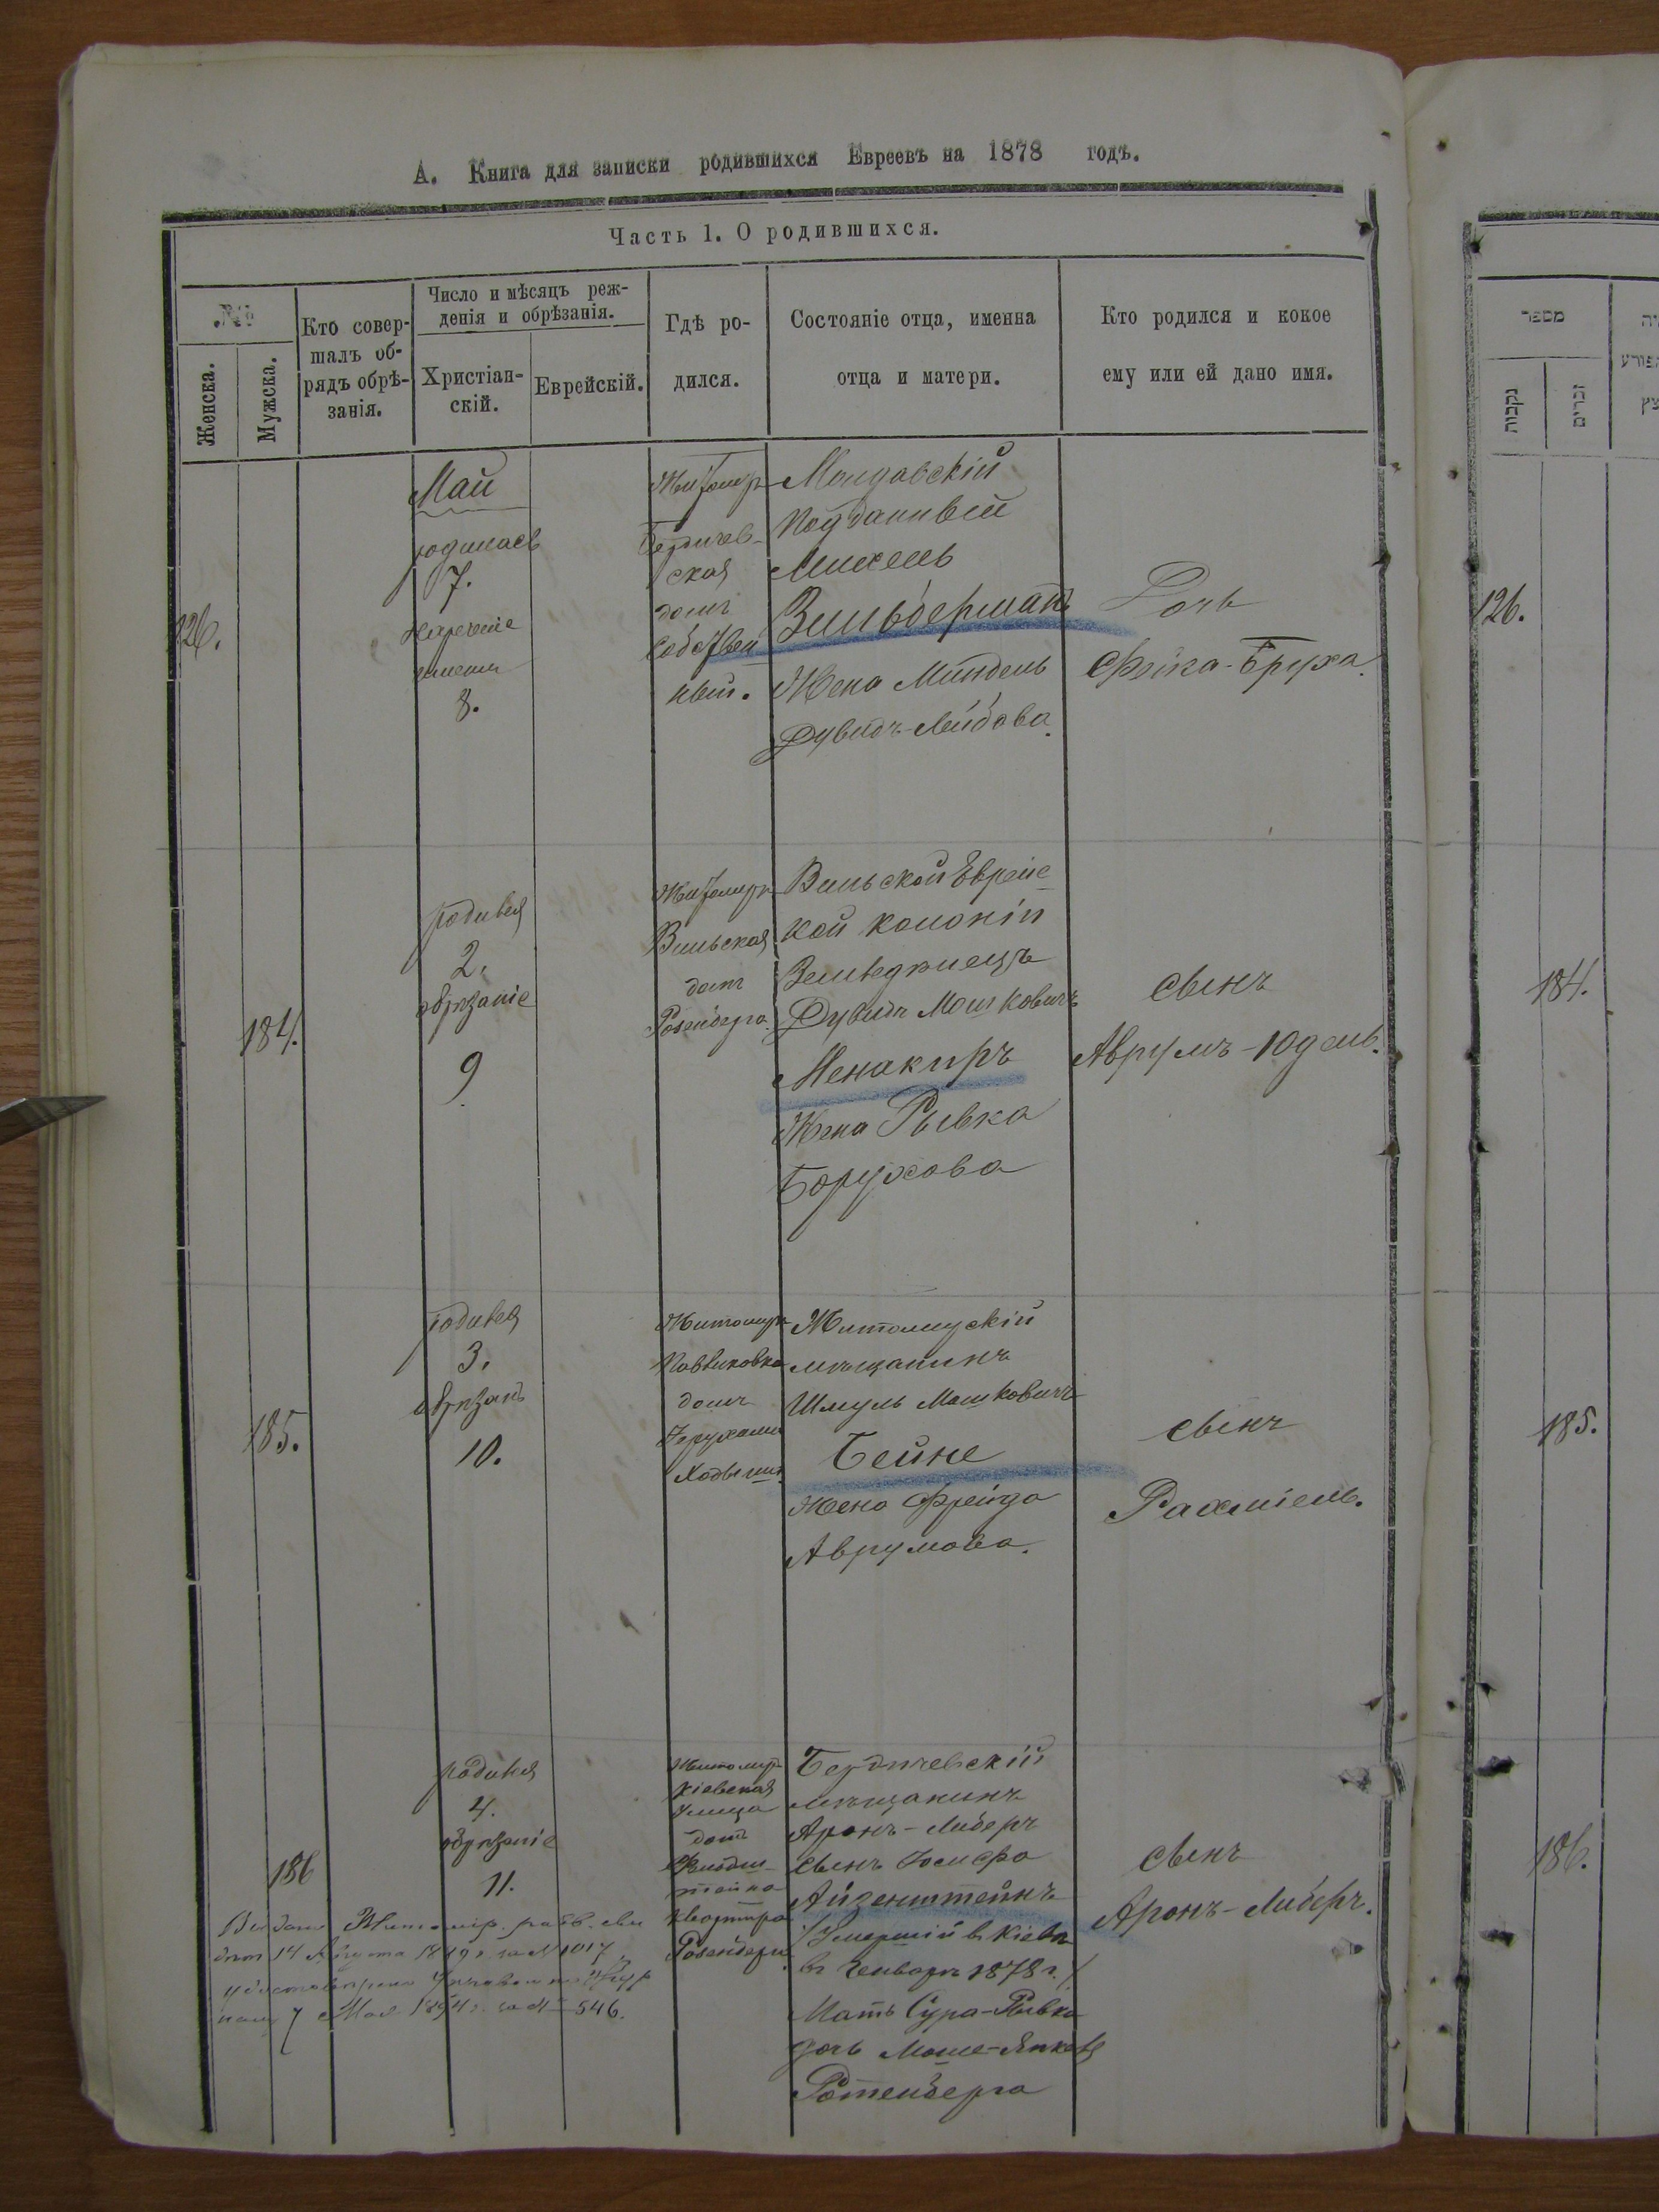 А. Книга для записки родившихся Евреевъ на 1878 годъ.
Часть 1. О родившихся.
№
Женска.
Мужска.
Кто совер-
шалъ об-
рядъ обрѣ-
занія.
Число и мѣсяцъ реж-
денія и обрѣзанія.
Христіан-
скій.
Еврейскій.
Гдѣ ро-
дился.
Состояніе отца, именна
отца и матери.
Кто родился и кокое
ему или ей дано имя.
126.
Май
родилась
7.
Нареченіе
имени
8.
Житомир
Бердичев-
ская
домъ
Собствен
ный.
Молдавскій
Подданный
Михель
Зильберманъ
Жена Миндель
Дувидъ-Лейбова.
Дочь
Фейга-Бруха.
184.
родився
2.
обрѣзаніе
9
Житомиръ
Вильская
домъ
Розенберга.
Вильской Еврейс
кой колоніи
Земледѣлецъ
Дувидъ Мошковичъ
Менакиръ
Жена Рывка
Борухова
сынъ
Аврумъ-Юдель.
185.
родився
3.
обрѣзанъ
10.
Житомиръ
домъ
Житомирскій
мѣщанинъ
Шмуль Мошковичъ
Бейне
Жена Фрейда
Аврумова.
сынъ
Рахміель.
186
родився
4.
обрѣзаніе
11.
Житомир
Кіевская
Улица
домъ
квартира
Розенберга.
Бердичевскій
мѣщанинъ
Аронъ-Либеръ
сынъ Іосифа
Айзенштейнъ
/Умершій в Кіевѣ
въ Генварѣ 1878 г./
Мать Сура-Рывка
дочь Моше-Янкеля
Ротенберга
сынъ
Аронъ-Либеръ.
Выдано Житомір. рабв. сви
14 Августа № 1017
7 Мая 1894 г. за № 546.
מספר
נקבות
זכרים
126.
184.
185.
186.